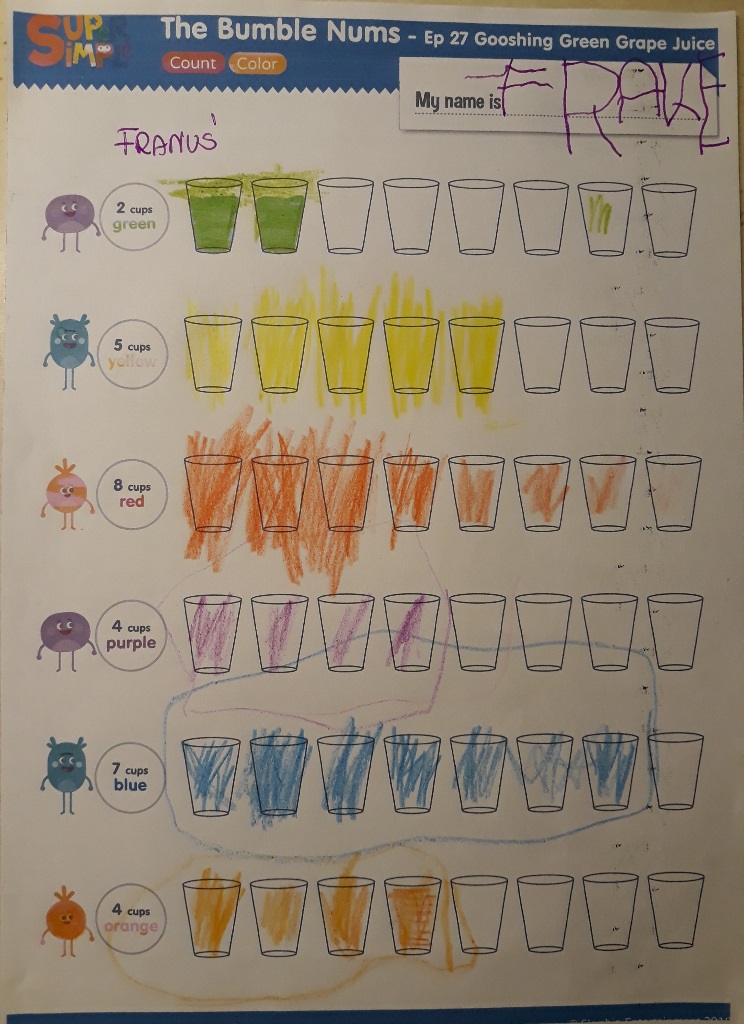 SUPER
SiMPLE
The Bumble Nums - Ep 27 Gooshing Green Grape Juice
Count Color
My name is
FRANUŚ
2 cups
green
5 cups
yellow
8 cups
red
4 cups
purple
7 cups
blue
4 cups
orange